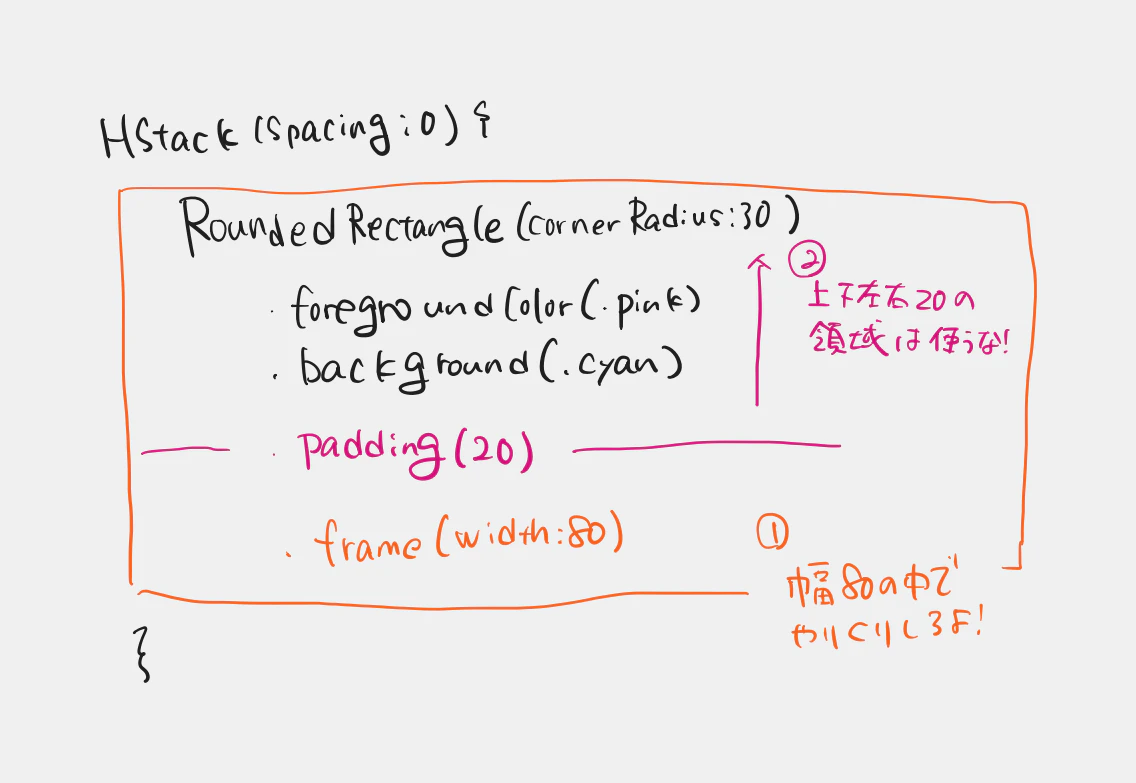 HStack (Spacing:0) {
RoundedRectangle (cornerRadius:30)
②
.foregroundColor(.pink)
上下左右20の
領域は使うな!
.background(.cyan)
.padding(20)
.frame(width:80)
①
幅80の中で
やりくりしろよ!
}